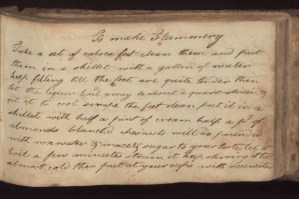 To make Flammery
Take a set of calves feet clean them and put
them in a skillet with a gallon of water
keep filling till the feet are quite tender then
let the liquor boil away to about a quart strain &
set it to cool scrape the fat clean put it in a
skillet with half a pint of cream half a pd of
almonds blanch'd will as pounded
with rosewater & mace & sugar to your taste let it
boil a few minutes strain it keep stirring it till
almost cold then put it your cups with